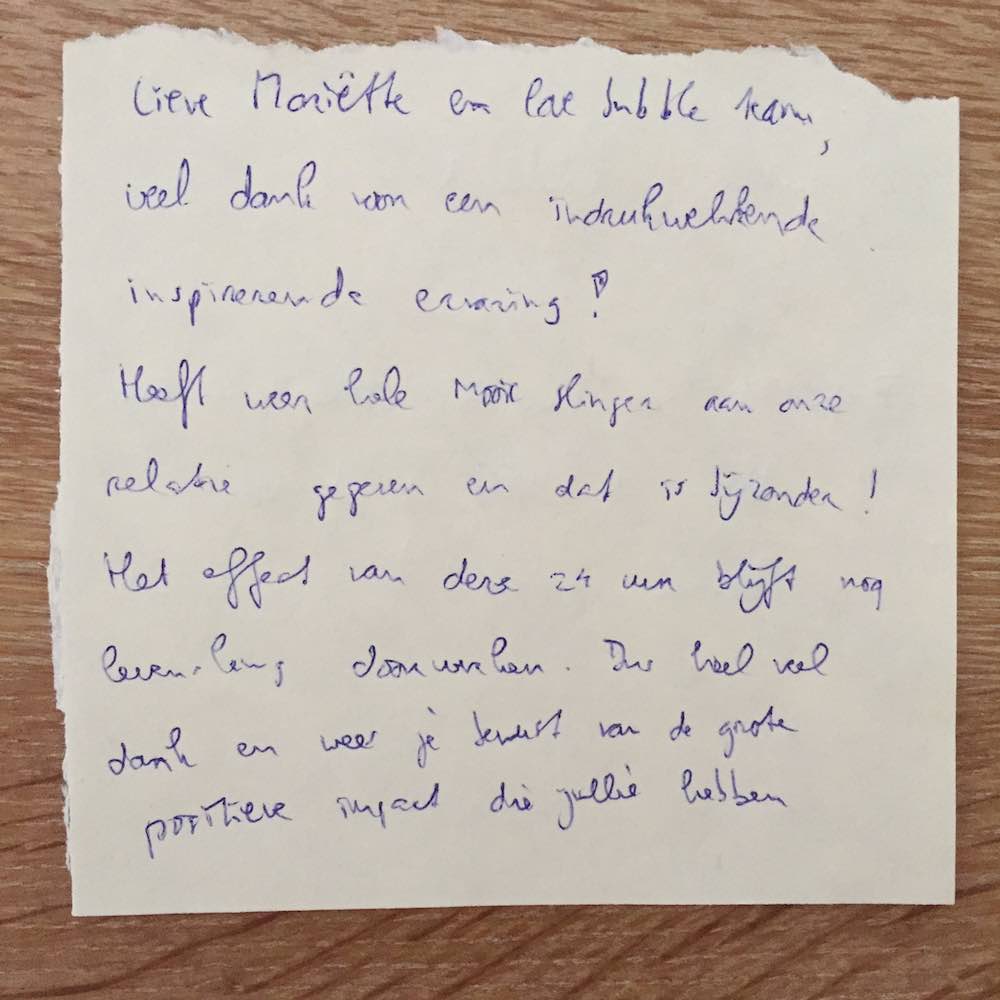 Lieve Mariëtte en love bubble team,
veel dank voor een indrukwekkende
inspirerende ervaring!
Heeft weer hele mooie slinger aan onze
relatie gegeven en dat is bijzonder!
Het effect van deze 24 uur blijft nog
levenslang doorwerken. Dus heel veel
dank en wees je bewust van de grote
positieve impact die jullie hebben